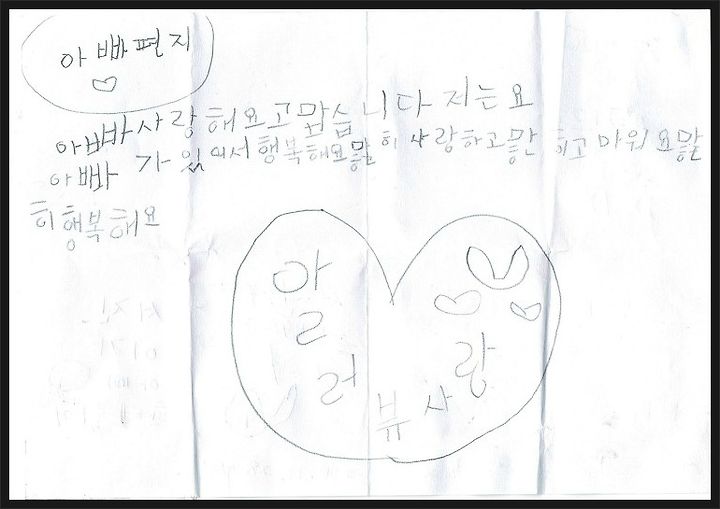 아빠편지
아빠사랑해요고맙습니다 저는요
아빠가있어서행복해요많히사랑하고많히고마워요많
히행복해요
알러뷰사랑